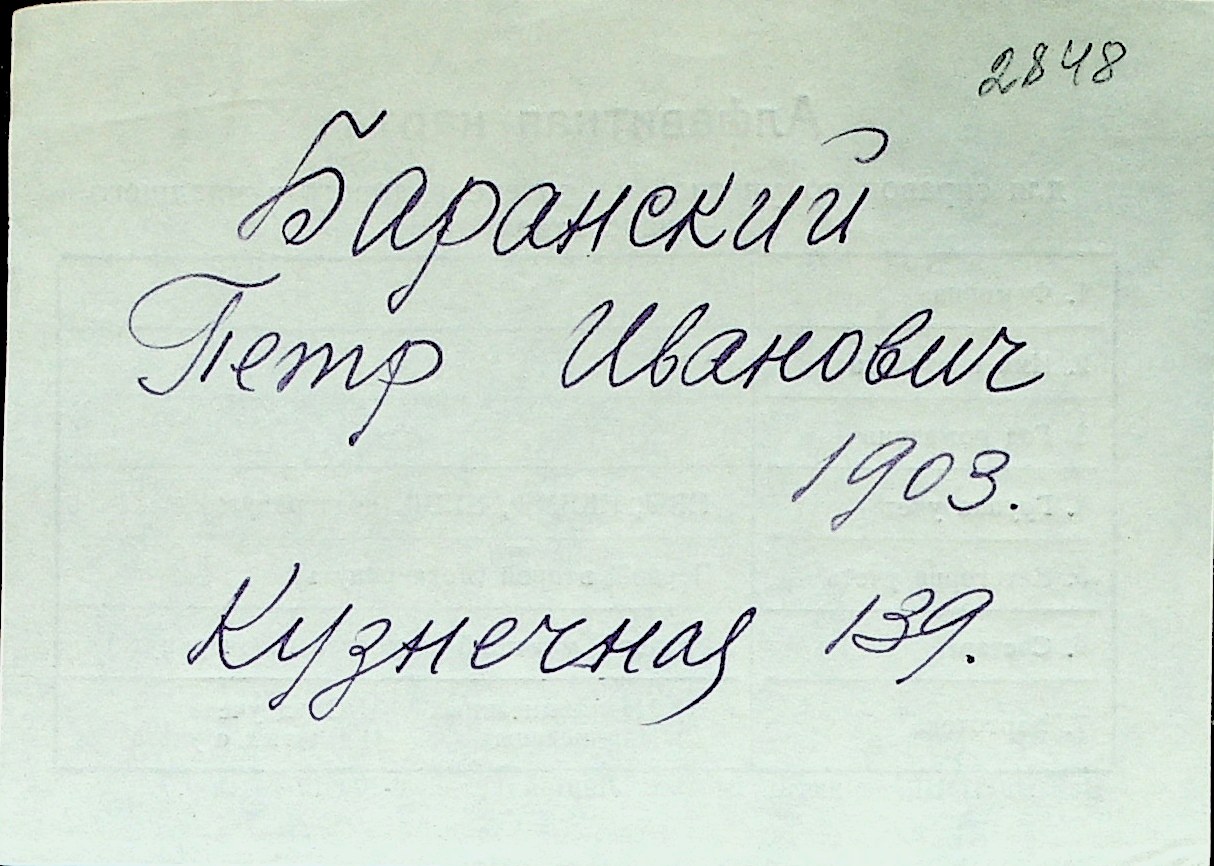 2848
Баранский
Петр Иванович
1903.
Кузнечная 139.